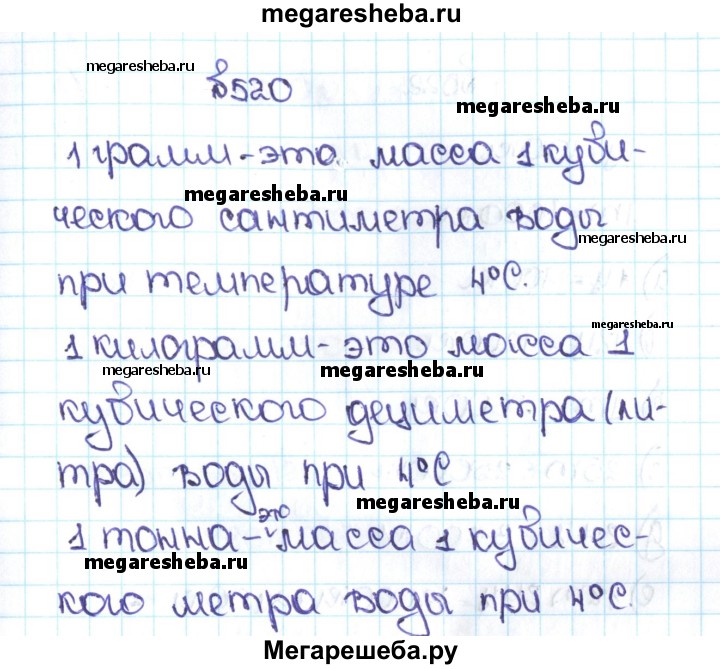 megaresheba.ru
megaresheba.ru
№520
megaresheba.ru
1 грамм-это масса 1 куби-
megaresheba.ru
ческого сантиметра воды
megaresheba.ru
при температуре 4°С.
megaresheba.ru
1 килограмм-это масса 1
megaresheba.ru
megaresheba.ru
кубического дециметра (ли-
тра) воды при 4°С
megaresheba.ru
это
1 тонна-масса 1 кубичес-
megaresheba.ru
кого метра воды при 4°С.
Мегарешеба.ру